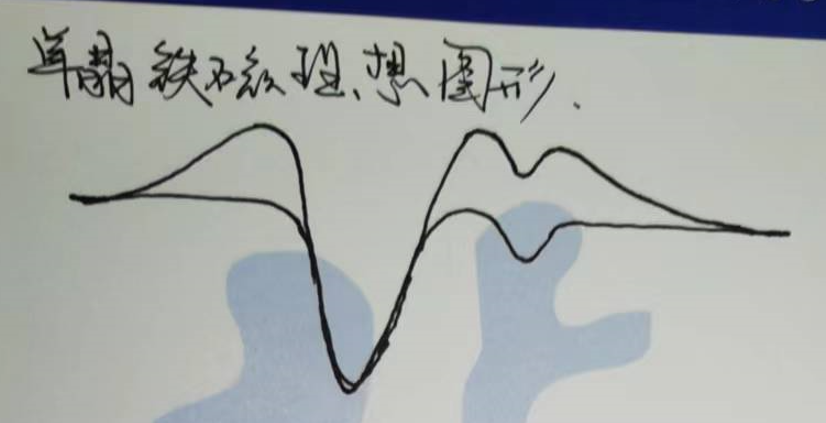 单晶铁磁理想图形.